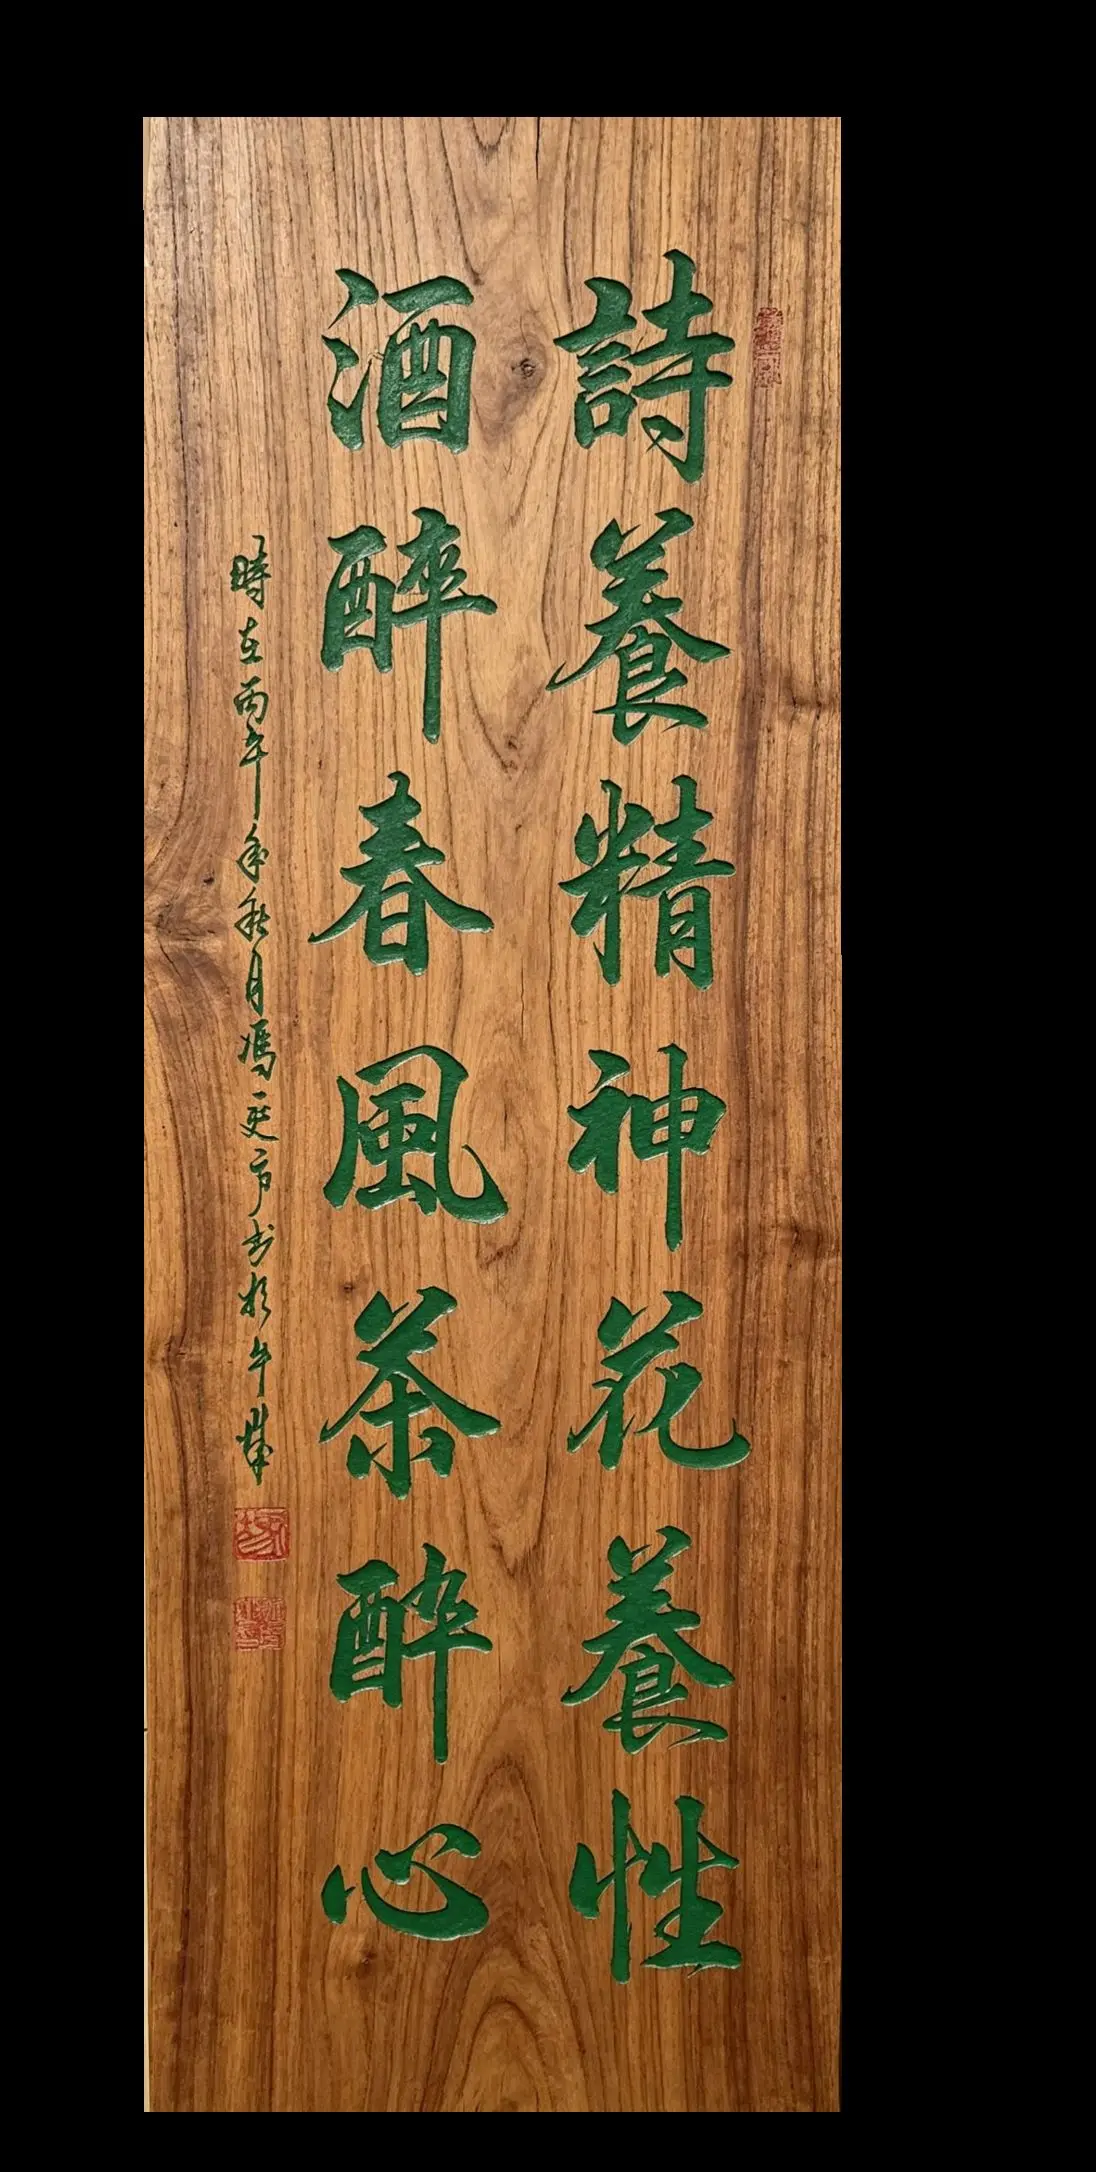 詩養精神花養性
酒醉春風茶醉心
時在丙午年秋月馮更市书於午